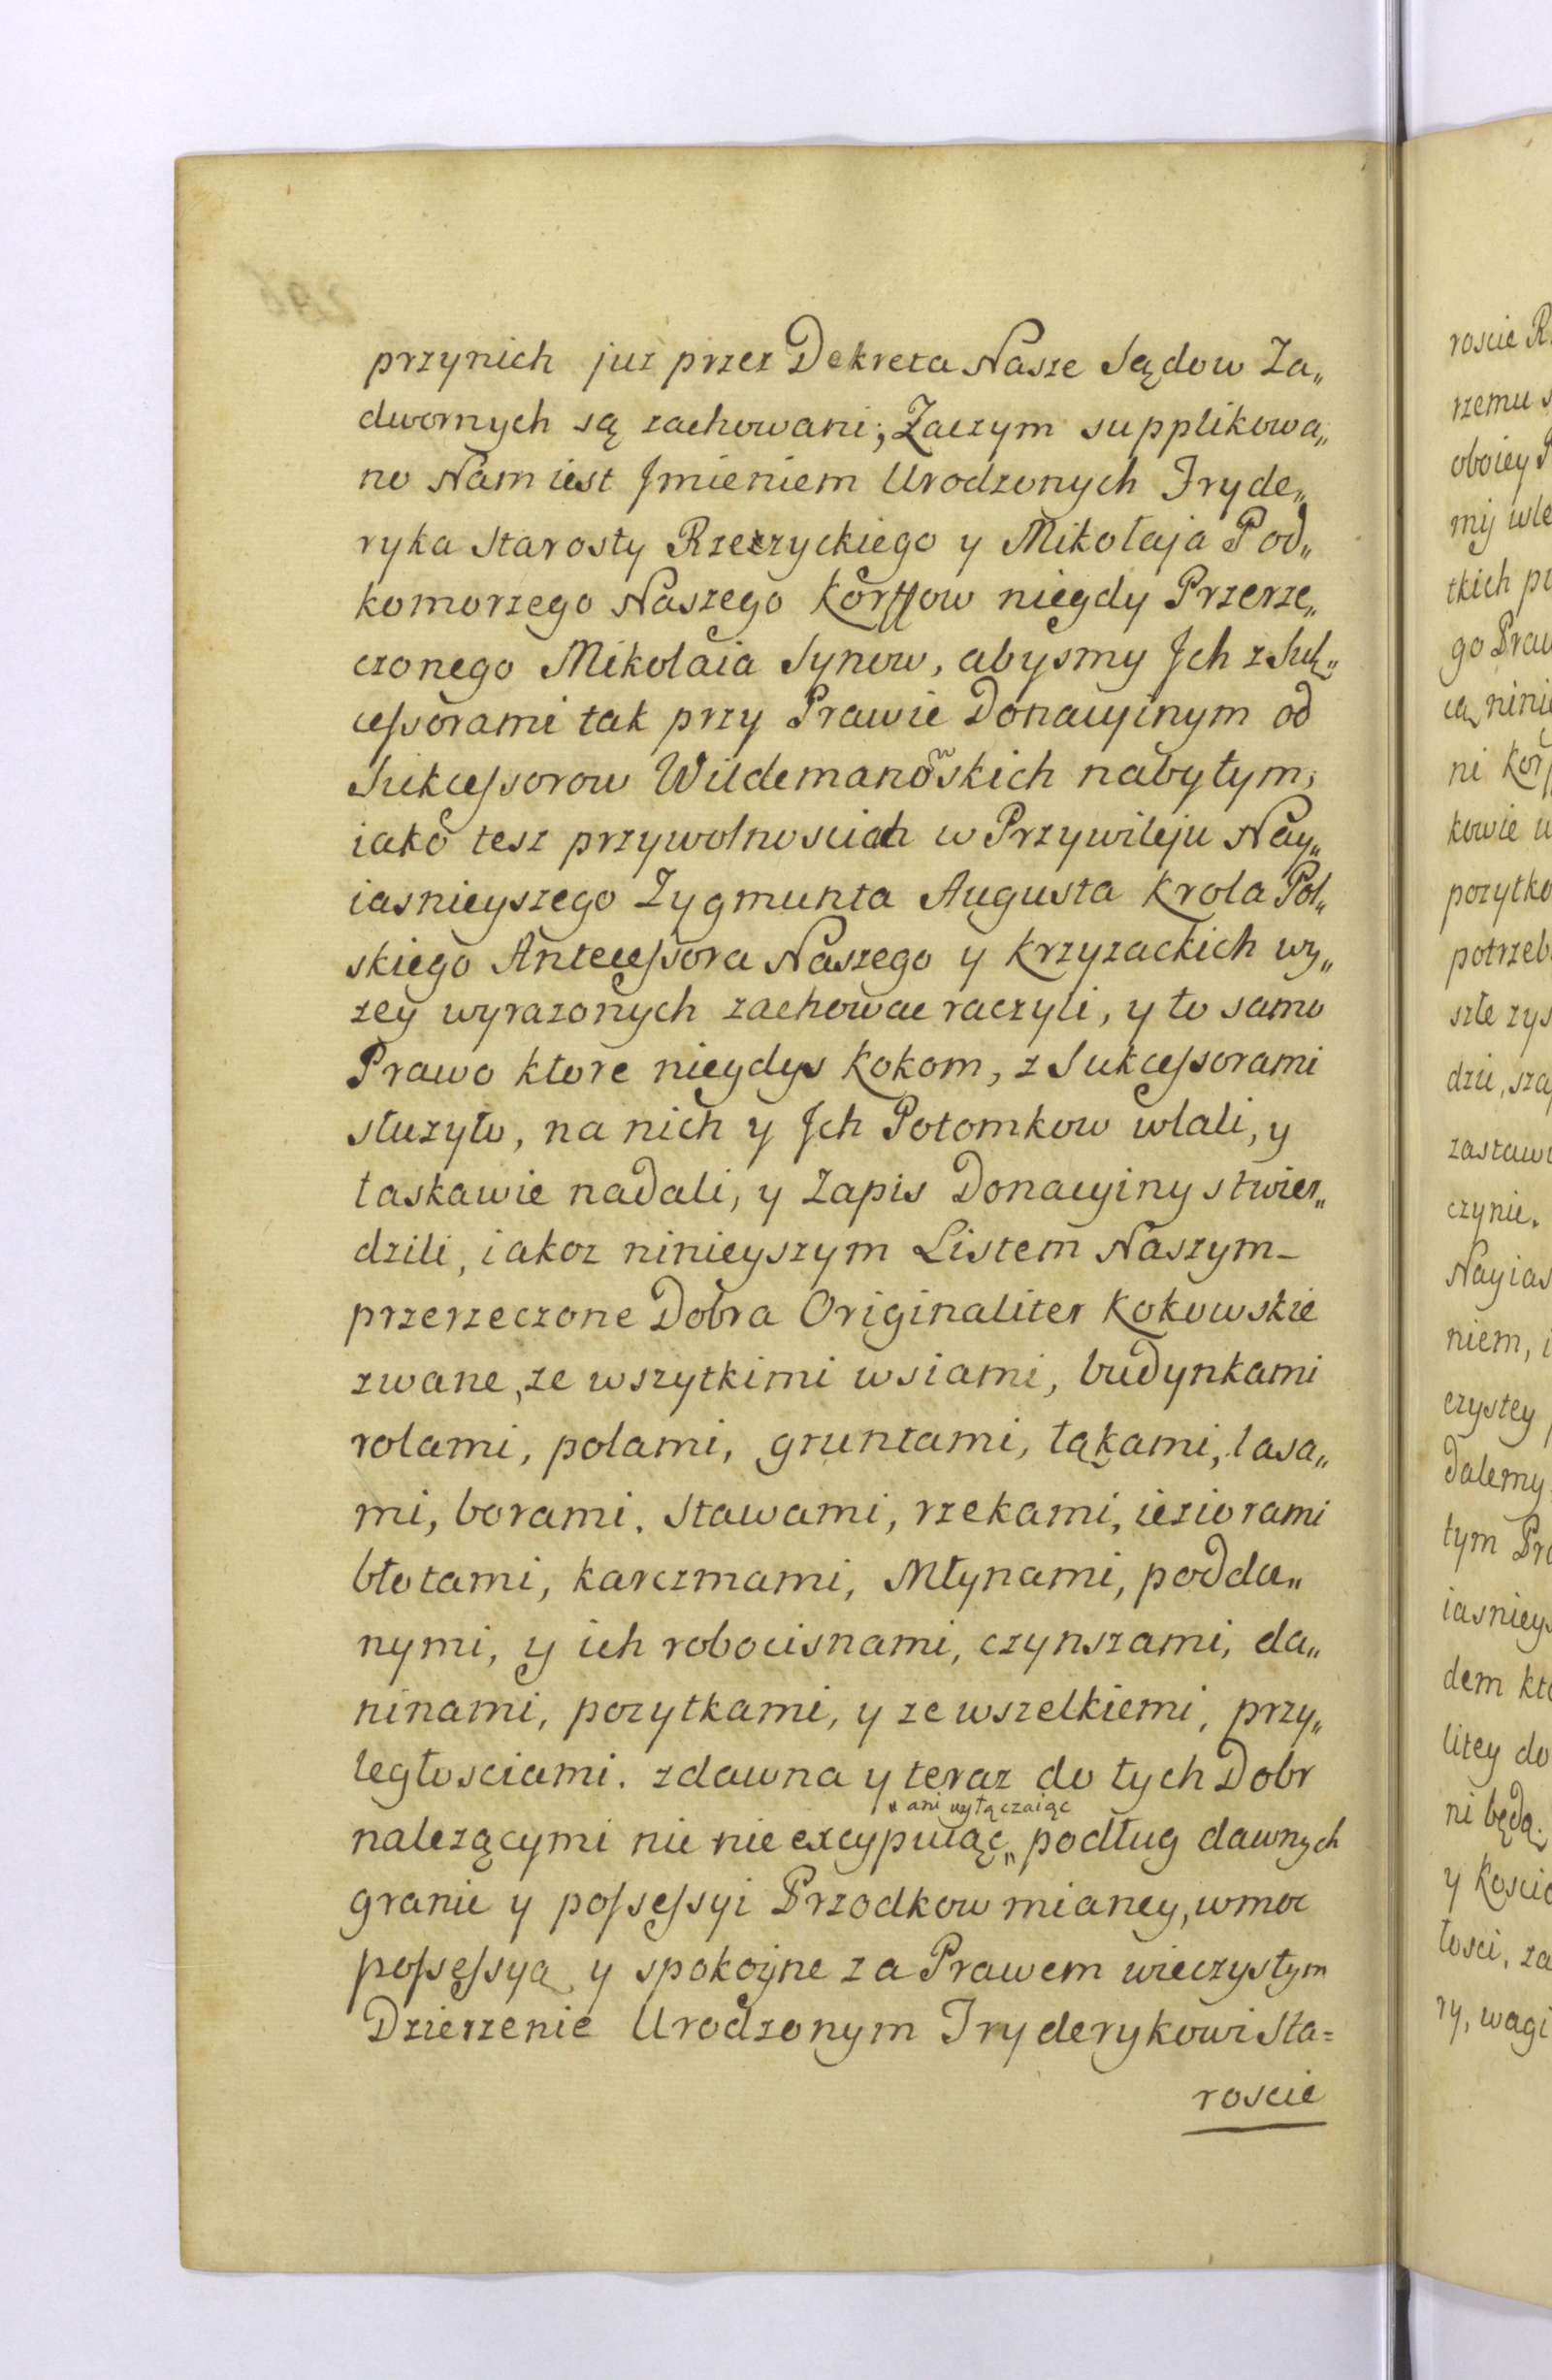 przynich juz przez Dekreta Nasze Sądow Za„
dwornych są zachowani; Zaczym supplikowa„
no Nam iest Jmieniem Urodzonych Fryde„
ryka Starosty Rzeczyckiego y Mikołaja Pod„
komorzego Naszego Korffow niegdy Przerze„
czonego Mikolaia Synow, abysmy Jch z Suk„
ceſsorami tak przy Prawie Donacyinym od
Sukceſsorow Wildemanowskich nabytym,
iako tesz przywolnosciach w Przywileju Nay„
iasnieyszego Zygmunta Augusta Krola Pol„
skiego Anteceſsora Naszego y Krzyzackich wy„
zey wyrazonych zachowac raczyli, y to samo
Prawo ktore niegdys Kokom, z Sukceſsorami
słuzyło, na nich y Jch Potomkow wlali, y
łaskawie nadali, y Zapis Donacyiny stwier„
dzili, iakoz ninieyszym Listem Naszym-
przerzeczone Dobra Originaliter Kokowskie
zwane, ze wszytkimi wsiami, budynkami
rolami, polami, gruntami, łąkami, lasa„
mi, borami, Stawami, rzekami, ieziorami
błotami, karczmami, Młynami, podda„
nymi, y ich robociznami, czynszami, da„
ninami, pozytkami, y ze wszelkiemi, przy„
ległosciami. zdawna y teraz do tych Dobr
„ ani wyłączaiąc
nalezącymi nic nie excypuiąc„ podług dawnych
granic y poſseſsyi Przodkow mianey, wmoc
poſseſsyą y spokoyne za Prawem wieczystym
Dzierzenie Urodzonym Fryderykowi Sta=
roscie
roscie R
rzemu s
oboiey P
mij wle
tkich pr
go Praw
cą ninie
ni Korf
kowie w
pozytko
potrzeb
szle zys
dzu, sza
zastawi
czynic.
Nayias
niem, i
czystey
dalemy
tym Pra
iasnieys
dem kto
litey do
ni będą.
y Koscio
łosci, za
ry, wagi